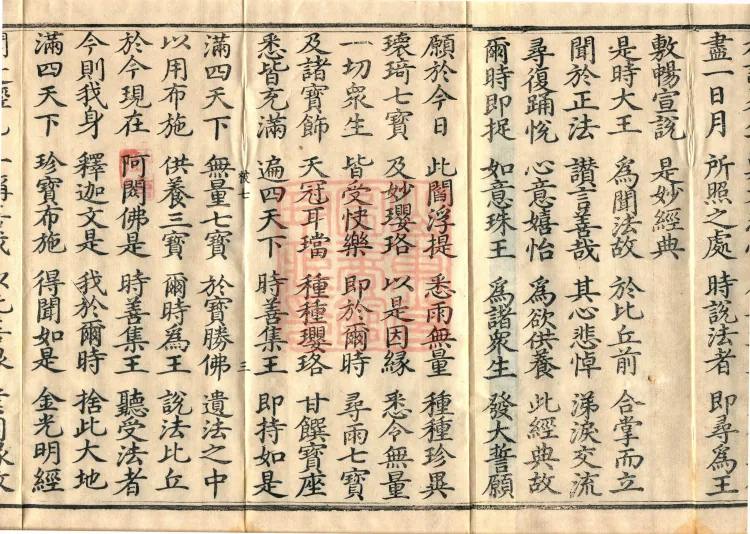 盡一日月 所照之處 時說法者 即尋爲王
敷暢宣說 是妙經典
是時大王 爲聞法故 於比丘前 合掌而立
聞於正法 讃言善哉 其心悲悼 涕淚交流
尋復踊悅 心意嬉怡 爲欲供養 此經典故
爾時即捉 如意珠王 爲諸衆生 發大誓願
願於今日 此閻浮提 悉雨無量 種種珍異
瓌琦七寶 及妙瓔珞 以是因緣 悉令無量
一切衆生 皆受快樂 即於爾時 尋雨七寶
及諸寶飾 天冠耳璫 種種瓔珞 甘饌寶座
悉皆充滿 遍四天下 時善集王 即持如是
七 三
滿四天下 無量七寶 於寶勝佛 遺法之中
以用布施 供養三寶 爾時爲王 說法比丘
於今現在 阿閦佛是 時善集王 聽受法者
今則我身 釋迦文是 我於爾時 捨此大地
滿四天下 珍寶布施 得聞如是 金光明經